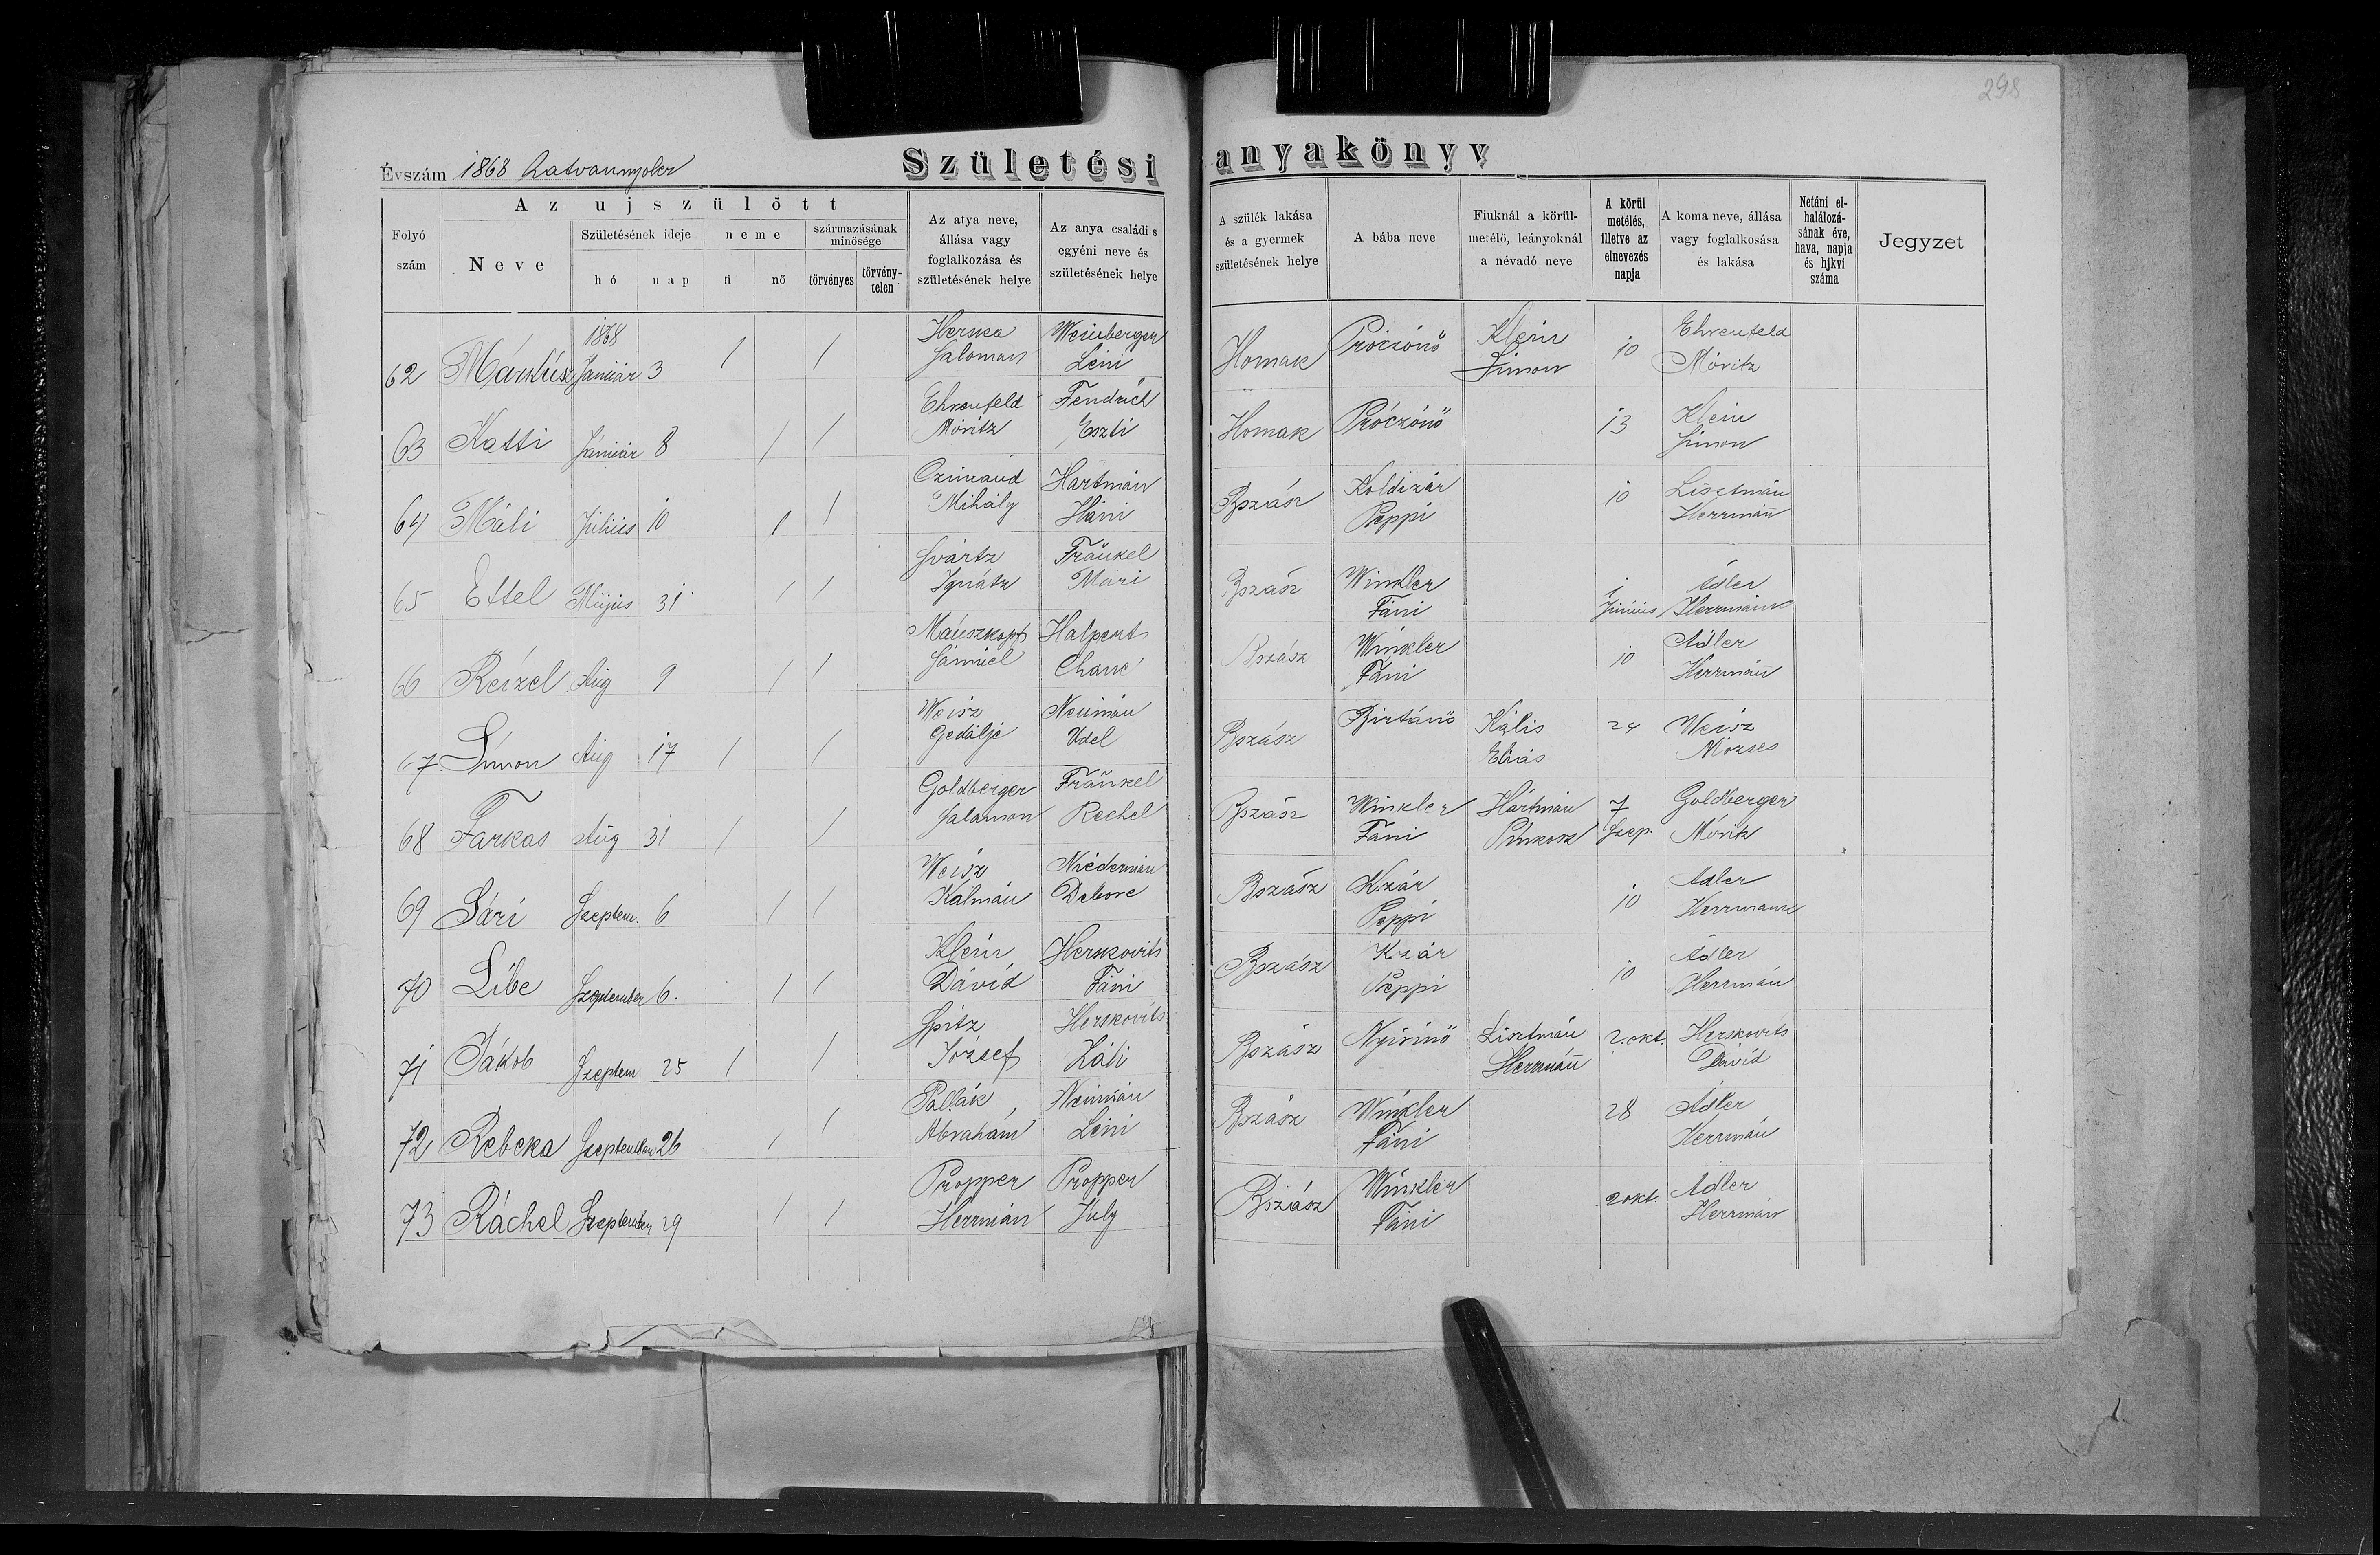 298
Születési anyakönyv
Évszám 1868 hatvannyolcz
Folyó szám
Az ujszülött
Neve
Születésének ideje
hó
nap
neme
fi
nő
származásának minősége
törvényes
törvény-telen
Az atya neve, állása vagy foglalkozása és születésének helye
Az anya családi s egyéni neve és születésének helye
A szülék lakása és a gyermek születésének helye
A bába neve
Fiuknál a körül-metélő, leányoknál a névadó neve
A körül metélés, illetve az elnevezés napja
A koma neve, állása vagy foglalkosása és lakása
Netáni el-halálozá-sának éve, hava, napja és hjkvi száma
Jegyzet
1868
62 Márkus Január 3 / / Herska Salomon Weinberger Léni Homak Próczónő Klein Simon 10 Ehrenfeld Móritz
63 Katti Január 8 / / Ehrenfeld Móritz Fendrich Eszti Homak Próczónő 13 Klein Simon
64 Máli Július 10 / / Mihály Hartmán Háni Bszász Peppi 10 Lisztmán Herrmann
65 Ettel Május 31 / / Svártz Ignátz Fränkel Mari Bszász Winkler Fáni 1 Június Adler Herrmann
66 Reizel Aug 9 / / Mauszkopf Sámuel Halpert Chane Bszász Winkler Fáni 10 Adler Herrmán
67 Simon Aug 17 / / Weisz Gedálje Neumán Udel Bszász Birtánő Kális Eliás 24 Weisz Mózses
68 Farkas Aug 31 / / Goldberger Salamon Fränkel Rechel Bszász Winkler Fáni Hártmán Pinkosz 7 Szep. Goldberger Móritz
69 Sári Szeptem. 6 / / Weisz Kálmán Niedermán Debore Bszász K.zár Peppi 10 Adler Herrmann
70 Libe Szeptember 6. / / Klein Dávid Herskovits Fáni Bszász K.zár Peppi 10 Adler Herrmán
71 Jákob Szeptem 25 / / Spitz József Herskovits Záli Bszász Nyirinő Lisztmán Hermánn 2.okt. Herskovits Dávid
72 Rebeka September 26 / / Pollák Abrahám Neimán Léni Bszász Winkler Fáni 28 Adler Herrmán
73 Ráchel September 29 / / Propper Herrmán Propper July Bszász Winkler Fáni 2okt. Adler Herrmán